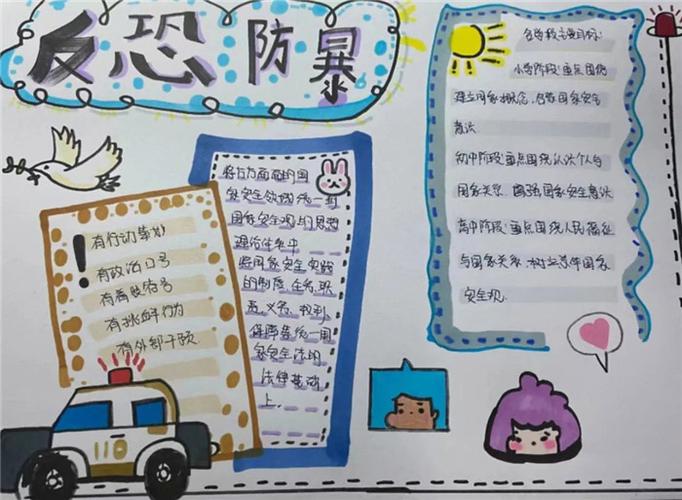 反恐防暴
各学段主要目标:
小学阶段:重点围绕
建立国家概念,启蒙国家安全
意识
初中阶段:重点围绕认识个人与
国家关系,增强国家安全意识
高中阶段:重点围绕人民福祉
与国家关系,树立总体国家
安全观
将各方面面的国
家安全领域统一到
国家安全观的思想
理论体系中
将国家安全实践
的制度、任务、职
责、义务、权利、
保障等统一用
国家安全法的
法律基础
上
!
有行动策划
有政治口号
有旗帜符号
有挑衅行为
有外部干预
110